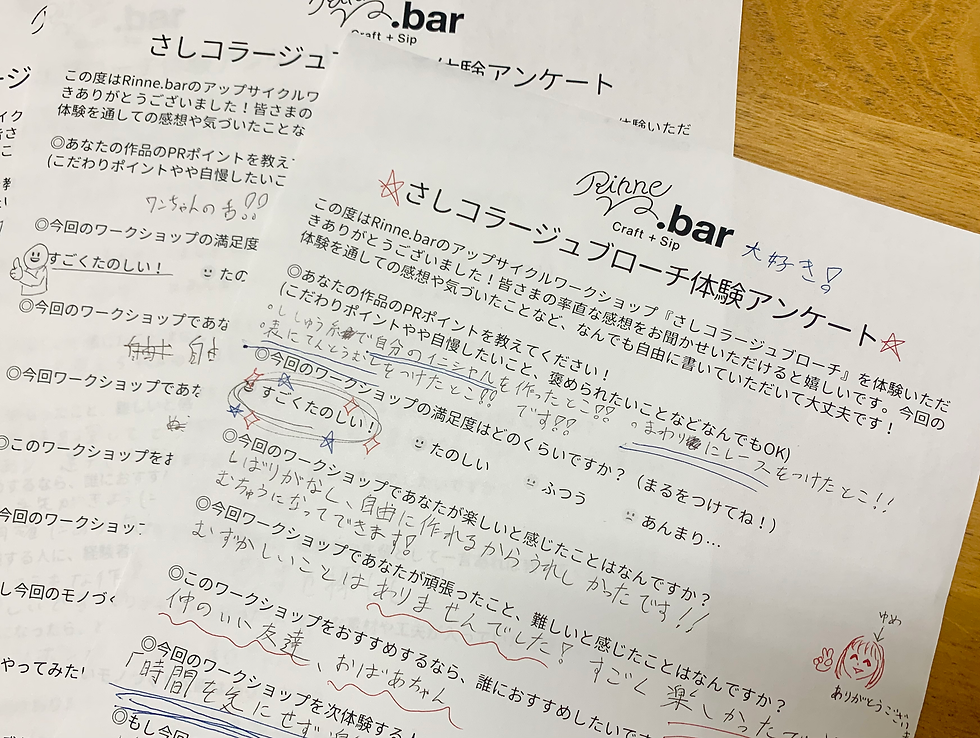 .bar
Craft + Sip
さしコラージュ
体験アンケート
この度はRinne.barのアップサイクルワ
体験いただ
きありがとうございました！皆さまの
体験を通しての感想や気づいたことな
◎あなたの作品のPRポイントを教え
(こだわりポイントやや自慢したいこ
ワンちゃんの舌!!
◎今回のワークショップの満足度
すごくたのしい！
たの
◎今回のワークショップであな
◎今回ワークショップであな
◎このワークショップをお
今回のワークショップ
し今回のモノづく
やってみた
Rinne
.bar
Craft + Sip
大好き!
☆さしコラージュブローチ体験アンケート☆
この度はRinne.barのアップサイクルワークショップ『さしコラージュブローチ』を体験いただ
きありがとうございました！皆さまの率直な感想をお聞かせいただけると嬉しいです。今回の
体験を通しての感想や気づいたことなど、なんでも自由に書いていただいて大丈夫です！
◎あなたの作品のPRポイントを教えてください！
(こだわりポイントやや自慢したいこと、褒められたいことなどなんでもOK)
。ししゅう糸で自分のイニシャルを作ったとこ!!
。まわりにレースをつけたとこ!!
。表にてんとうむしをつけたとこ!! です!!
◎今回のワークショップの満足度はどのくらいですか？（まるをつけてね！）
すごくたのしい！
たのしい
ふつう
あんまり…
◎今回のワークショップであなたが楽しいと感じたことはなんですか？
しばりがなし、自由に作れるからうれしかったです!!
むちゅうになってできます!
◎今回ワークショップであなたが頑張ったこと、難しいと感じたことはなんですか？
むずかしいことはありませんでした! すごく楽しかったで
◎このワークショップをおすすめするなら、誰におすすめしたいで
仲のいい友達、おばあちゃん
◎今回のワークショップを次体験する
「時間を気にせず
◎もし今回
ゆめ
ありがとうござい